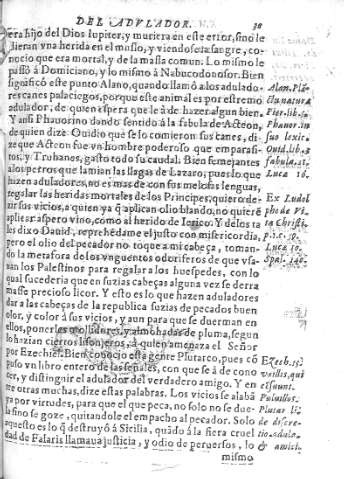 DEL ADVLADOR.
era hijo del Dios Iupiter, y muriera en este error, sino le
lieran vna herida en el muslo, y viendose la sangre, co-
nocio que era mortal, y de la massa comun. Lo mismo le
passò a Domiciano, y lo mismo à Nabucodonosor. Bien
significò este punto Alano, quando llamò a los adulado-
res canes palaciegos, porque este animal es por estremo
adulador, de quien espera que le à de hazer algun bien.
Y assi Phauorino dando sentido à la fabula de Acteon,
de quien dize Ouidio que se lo comieron sus canes, di-
ze que Acteon fue vn hombre poderoso que emparasi-
tos, y Truhanes, gasto todo su caudal. Bien semejantes
a los perros que lamian las llagas de Lazaro, pues lo que
hazen aduladores, no es mas de con sus melosas lenguas,
regalar las heridas mortales de los Principes, quiero de-
zir sus vicios, a quien ya q̃ aplican olio blando, no quierẽ
apliear aspero vino, como al herido de Ierico. Y destos ta
les dixo Dauid, reprehẽdame el justo con misericordia,
pero el olio del pecador no toque a mi cabeça, toman-
do la metafora de los vnguentos odoriferos de que vsa-
van los Palestinos para regalar a los huespedes, con lo
qual sucederia que en suzias cabeças alguna vez se derra
masse precioso licor. Y esto es lo que hazen aduladores
dar a las cabeças de la republica suzias de pecados buen
olor, y color à sus vicios, y aun para que se duerman en
ellos, ponerles mollidares, y almohadas de pluma, segun
lo hazian ciertos lisonjeros, à quien amenaza el Señor
por Ezechiel. Bien conocio esta gente Plutarco, pues cõ
puso vn libro entero de las señales, con que se à de cono
cer, y distinguir el adulador del verdadero amigo. Y en
tre otras muchas, dize estas palabras. Los vicios se alabã
ya por virtudes, para que el que peca, no solo no se due-
la sino se goze, quitandole el empacho al pecador. Solo
aquesto es lo q̃ destruyò à Sicilia, quãdo à la fiera cruel
dad de Falaris llamaua justicia, y odio de peruersos, lo
mismo
Alan. Plã-
ctu naturæ
Pier. lib. 5.
Phauor. in
suo lexic.
Ouid. lib. 3.
fabula. 2.
Luca 16.
Ex Ludol
pho de Vi-
ta Christi.
Luca 10.
Psal. 140.
Ezech. 13.
Plutar. li.
de discre-
& amici.